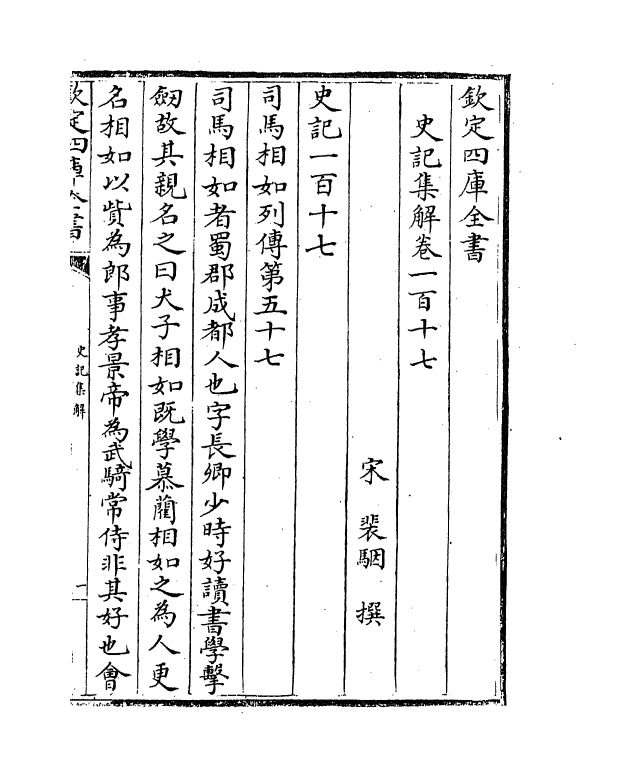 欽定四庫全書
史記集解卷一百十七
宋 裴駰 撰
史記一百十七
司馬相如列傳第五十七
司馬相如者蜀郡成都人也字長卿少時好讀書學擊
劒故其親名之曰犬子相如既學慕藺相如之為人更
名相如以貲為郎事孝景帝為武騎常侍非其好也會
欽定四庫全書
史記集解
一